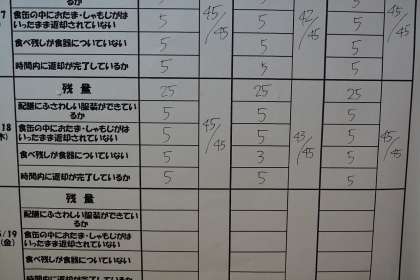 るか
7 食缶の中におたま・しゃもじがは 5 5 5
いったまま返却されていない 45/45 42/45 45/45
食べ残しが食器についていない 5 5 5
時間内に返却が完了しているか 5 5 5
残量 25 25 25
配膳にふさわしい服装ができてい 5 5 5
るか
18 食缶の中におたま・しゃもじがは 5 5 5
木) いったまま返却されていない 45/45 43/45 45/45
食べ残しが食器についていない 5 3 5
時間内に返却が完了しているか 5 5 5
残量
配膳にふさわしい服装ができてい
るか
/19 食缶の中におたま・しゃもじがは
(金) いったまま返却されていない
食べ残しが食器についていない
時間内に返却が完了しているか